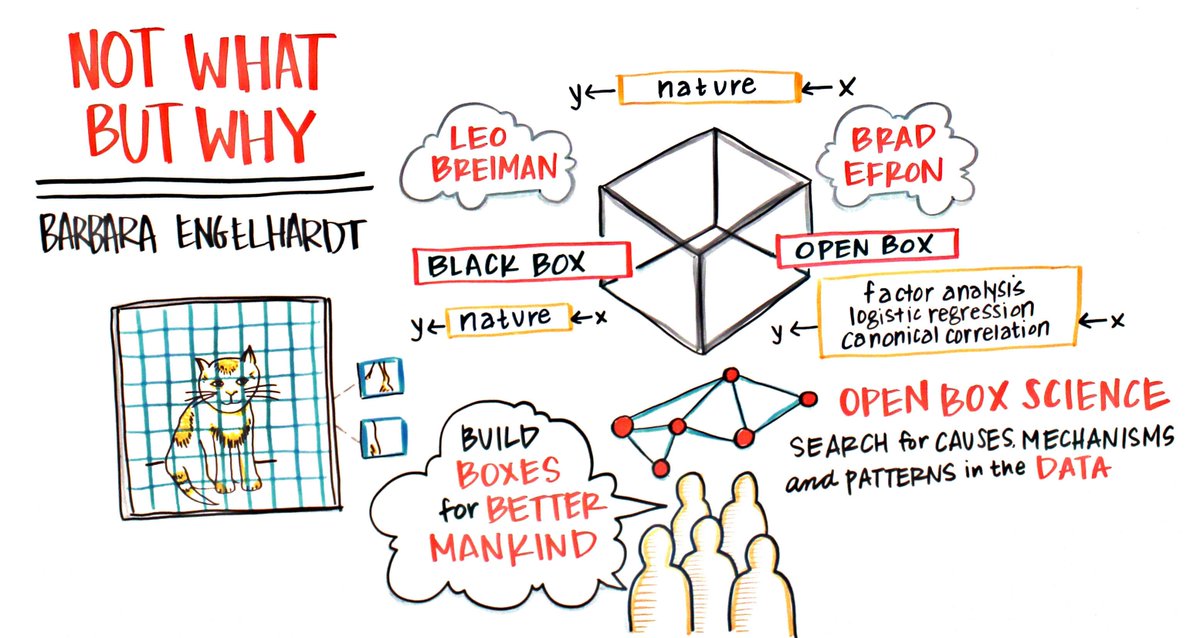 NOT WHAT
BUT WHY
BARBARA ENGELHARDT
y ← nature ← x
LEO
BREIMAN
BRAD
EFRON
BLACK BOX
OPEN BOX
y ← nature ← x
factor analysis
logistic regression
y ← canonical correlation ← x
BUILD
BOXES
for BETTER
MANKIND
OPEN BOX SCIENCE
SEARCH for CAUSES. MECHANISMS
and PATTERNS in the DATA